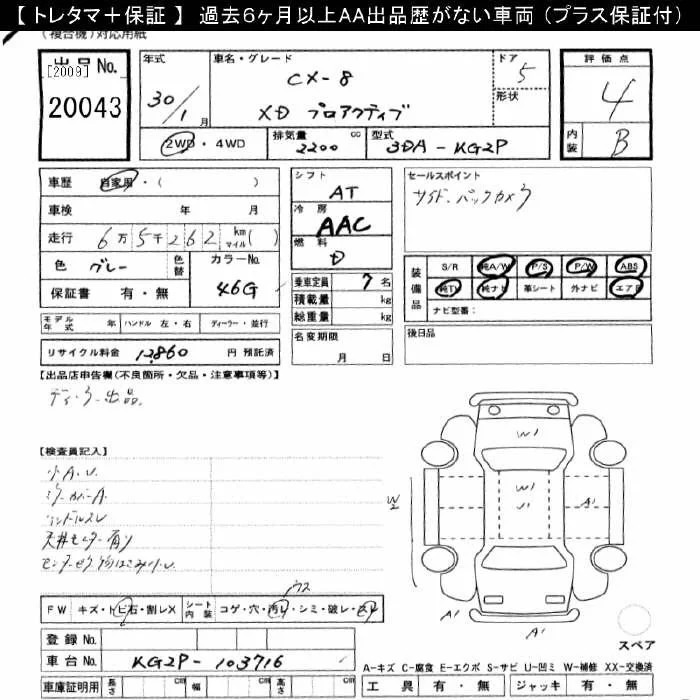 【 トレタマ＋保証 】 過去6ヶ月以上AA出品歴がない車両 (プラス保証付)
(複合機)対応用紙
出品No.
[2009]
20043
年式
30/1月
車名・グレード
CX-8
XD プロアクティブ
ドア
5
形状
評価点
4
内装
B
2WD・4WD
排気量
2200 cc
型式
3DA-KG2P
車歴 自家用・( )
車検 年 月
走行 6万5千262 km マイル( )
色 グレー
色替
カラーNo.
46G
保証書 有・無
シフト
AT
冷房
AAC
燃料
D
乗車定員 7名
積載量 kg
総重量 kg
名変期限
月 日
セールスポイント
サイド、バックカメラ
装備品
S/R 純A/W P/S P/W ABS
純TV 純ナビ 革シート 外ナビ エアB
ナビ型番:
後日品
モデル年式 年 ハンドル 左・右 ディーラー・並行
リサイクル料金 12,860 円 預託済
【出品店申告欄(不良箇所・欠品・注意事項等)】
ディーラー出品。
【検査員記入】
小A.U.
ハンドルスレ
天井モニター有り
W1
W1
U1
A1
W2
A1
A1
FW キズ・トビ石・割レX シート内装 コゲ・穴・汚レ・シミ・破レ・スレ
ウス
登録No.
車台No. KG2P-103716
車庫証明用 長さ cm 幅 cm 高さ cm
スペア
A-キズ C-腐食 E-エクボ S-サビ U-凹ミ W-補修 XX-交換済
工具 有・無 ジャッキ 有・無